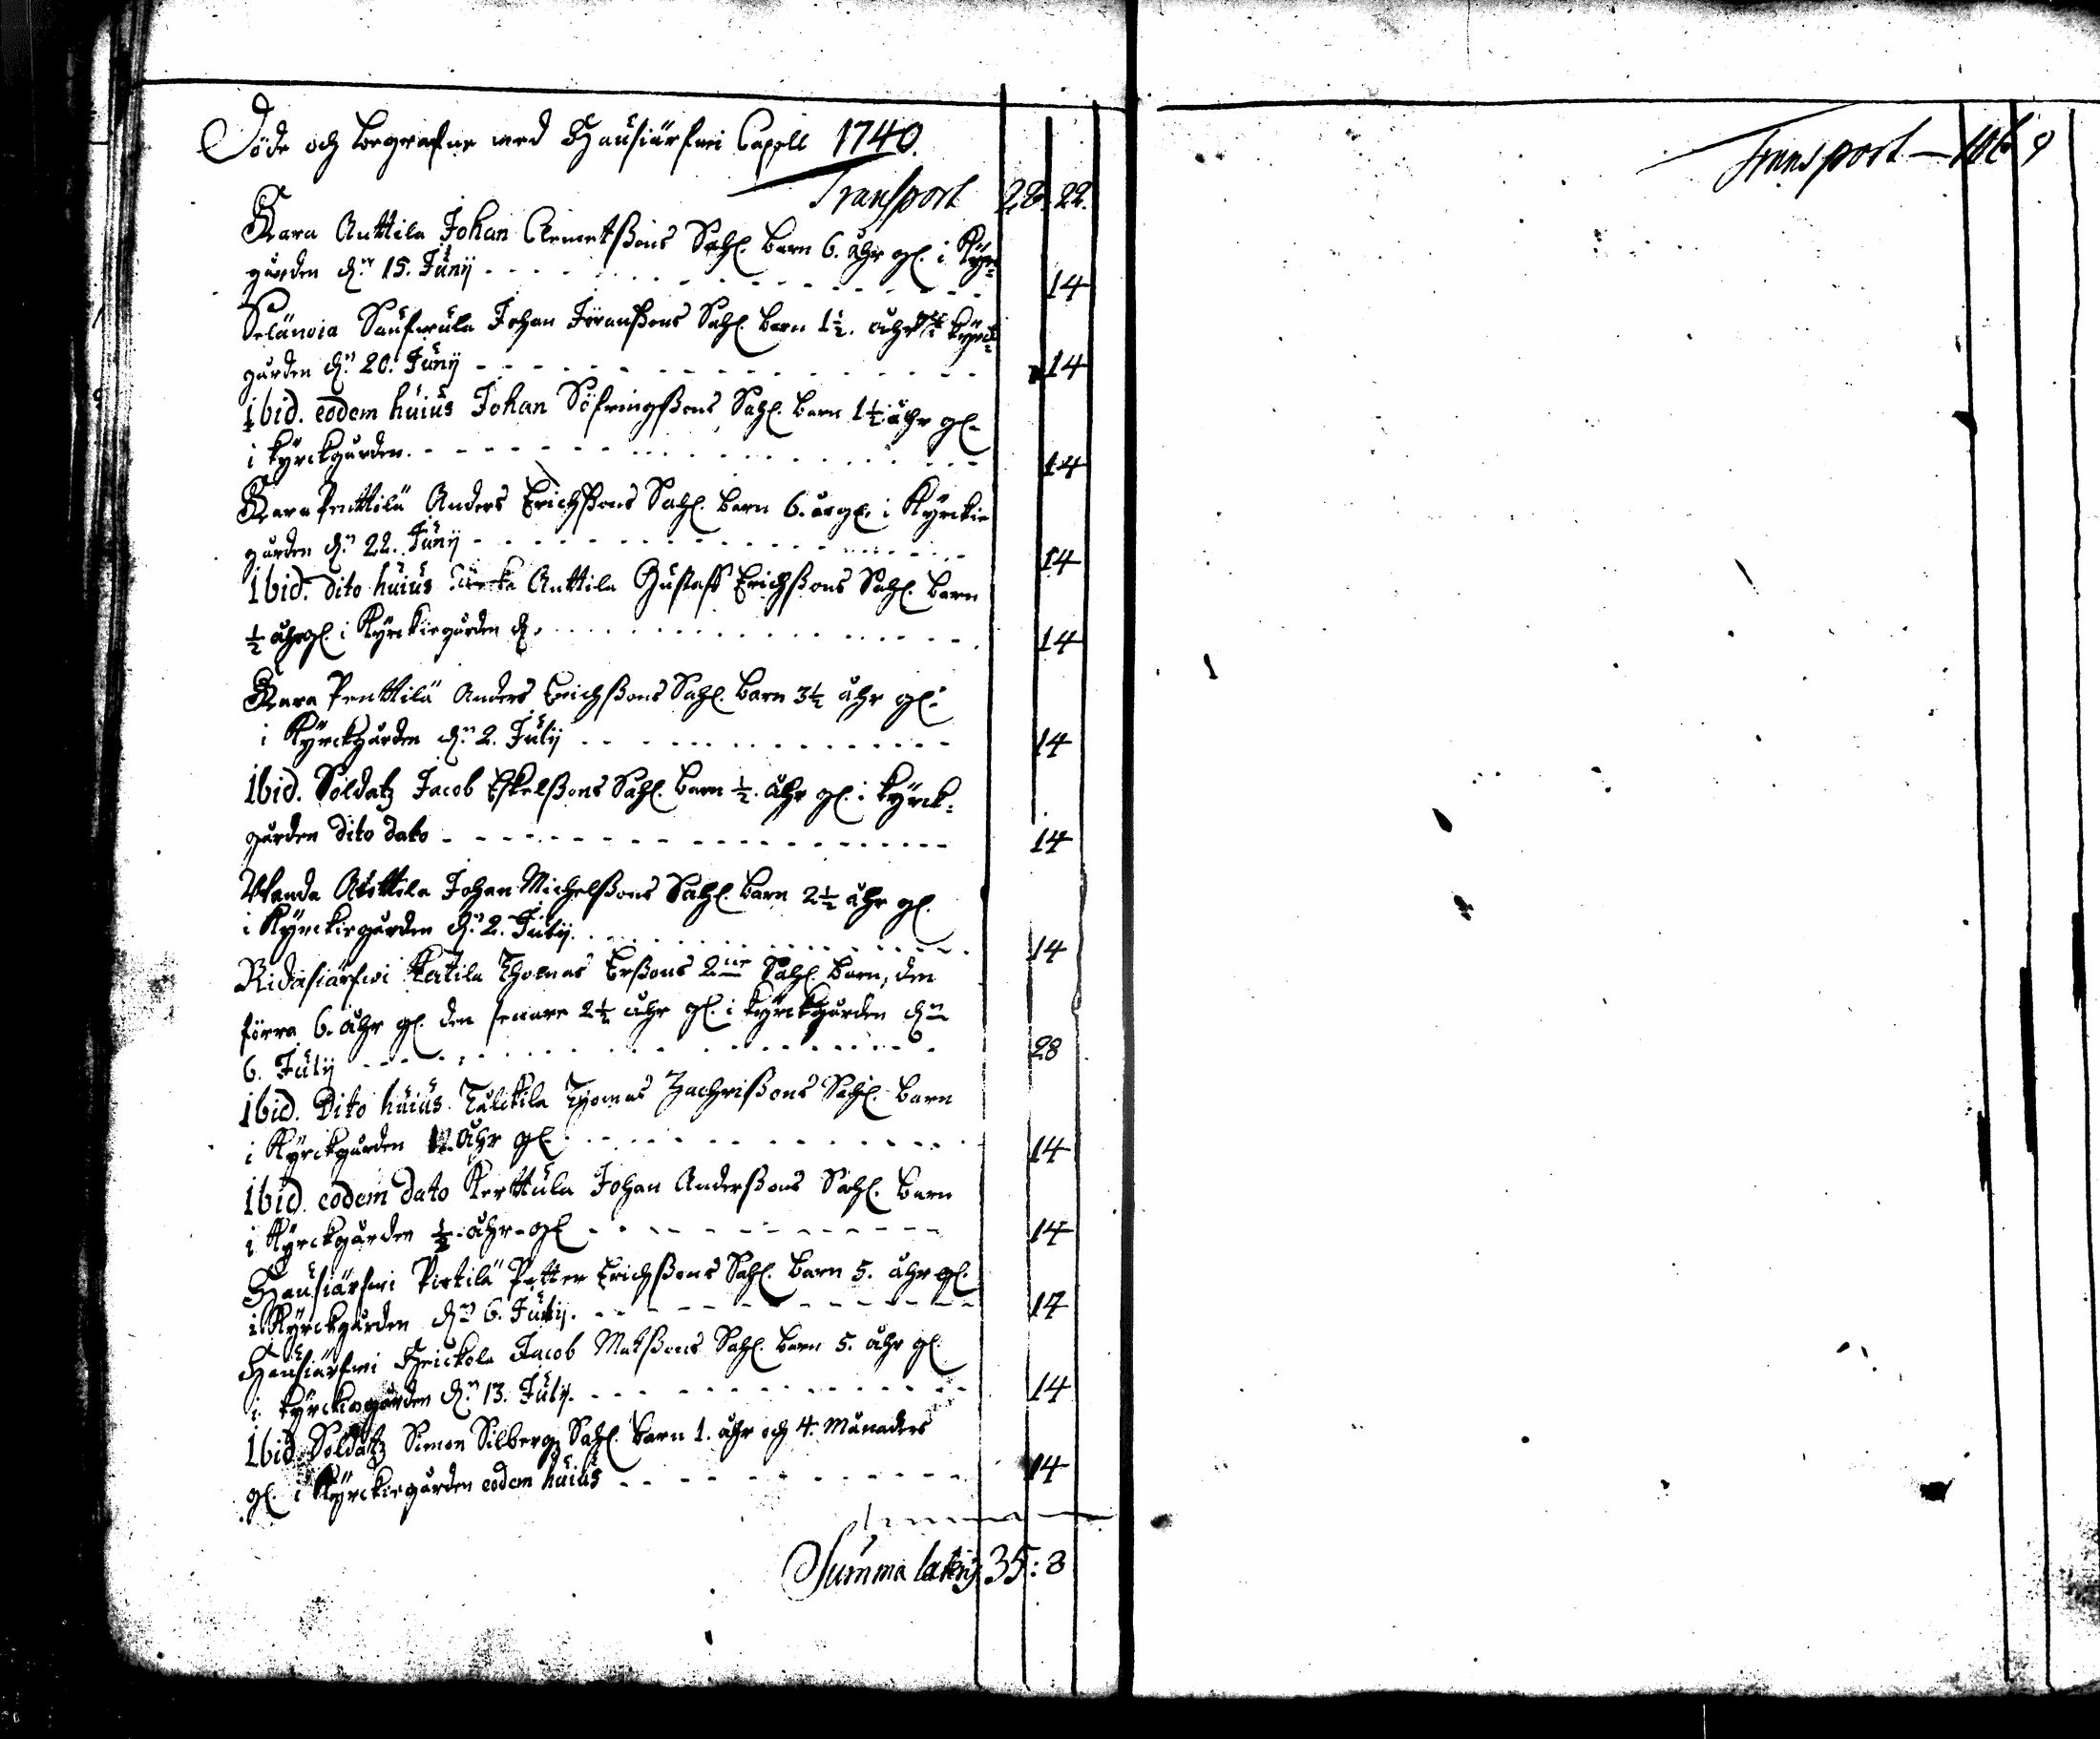 Döde och begrafne wed Hausiärfwi Capell 1740.
Transport 28. 22.
Kara Anttila Johan Clemetßons Sahl. barn 6. åhr gl. i Kyr=
gården dn 15. Junij 14
Selänoia Johan Jöranßons Sahl. barn 1½. åhr gl. i kyrck=
gården dn 20. Junij 14
ibid. eodem huius Johan Söfringßons Sahl. barn 1½ åhr gl.
i kyrckgården. 14
Kara Penttilä Anders Erichßons Sahl. barn 6. år gl. i Kyrckie
gården dn 22. Junij 14
Ibid. dito huius Anttila Gustaff Erichßons Sahl. barn
½ åhr gl. i Kyrckiegården 14
Kara Penttilä Anders Erichßons Sahl. barn 3½ åhr gl.
i Kyrckgården dn 2. Julij 14
Ibid. Soldatz Jacob Eskelßons Sahl. barn ½. åhr gl. i kyrck=
gården dito dato 14
Johan Michelßons Sahl. barn 2½ åhr gl.
i Kyrckiegården dn 2. Julij. 14
Ridasiärfwi Thomas Erßons 2ne Sahl. barn, den
förra 6. åhr gl. den senare 2½ åhr gl. i kyrckgården dn
6. Julij 28
ibid. Dito huius Thomas Zachrißons Sahl. barn
i Kyrckgården åhr gl. 14
ibid. eodem dato Kerttula Johan Anderßons Sahl. barn
i Kyrckgården ½ åhr gl 14
Hausiärfwi Pirtilä Petter Erichßons Sahl. barn 5. åhr gl.
i Kyrckgården dn 6. Julij. 14
Hausiärfwi Heickola Jacob Matßons Sahl. barn 5. åhr gl.
i kyrckiogården dn 13. Julij. 14
Ibid Soldatz Simon Silberg Sahl. barn 1. åhr och 4. Månaders
gl. i Kyrckiegården eodem huius 14
Summa lateris 35: 8
Transport 9